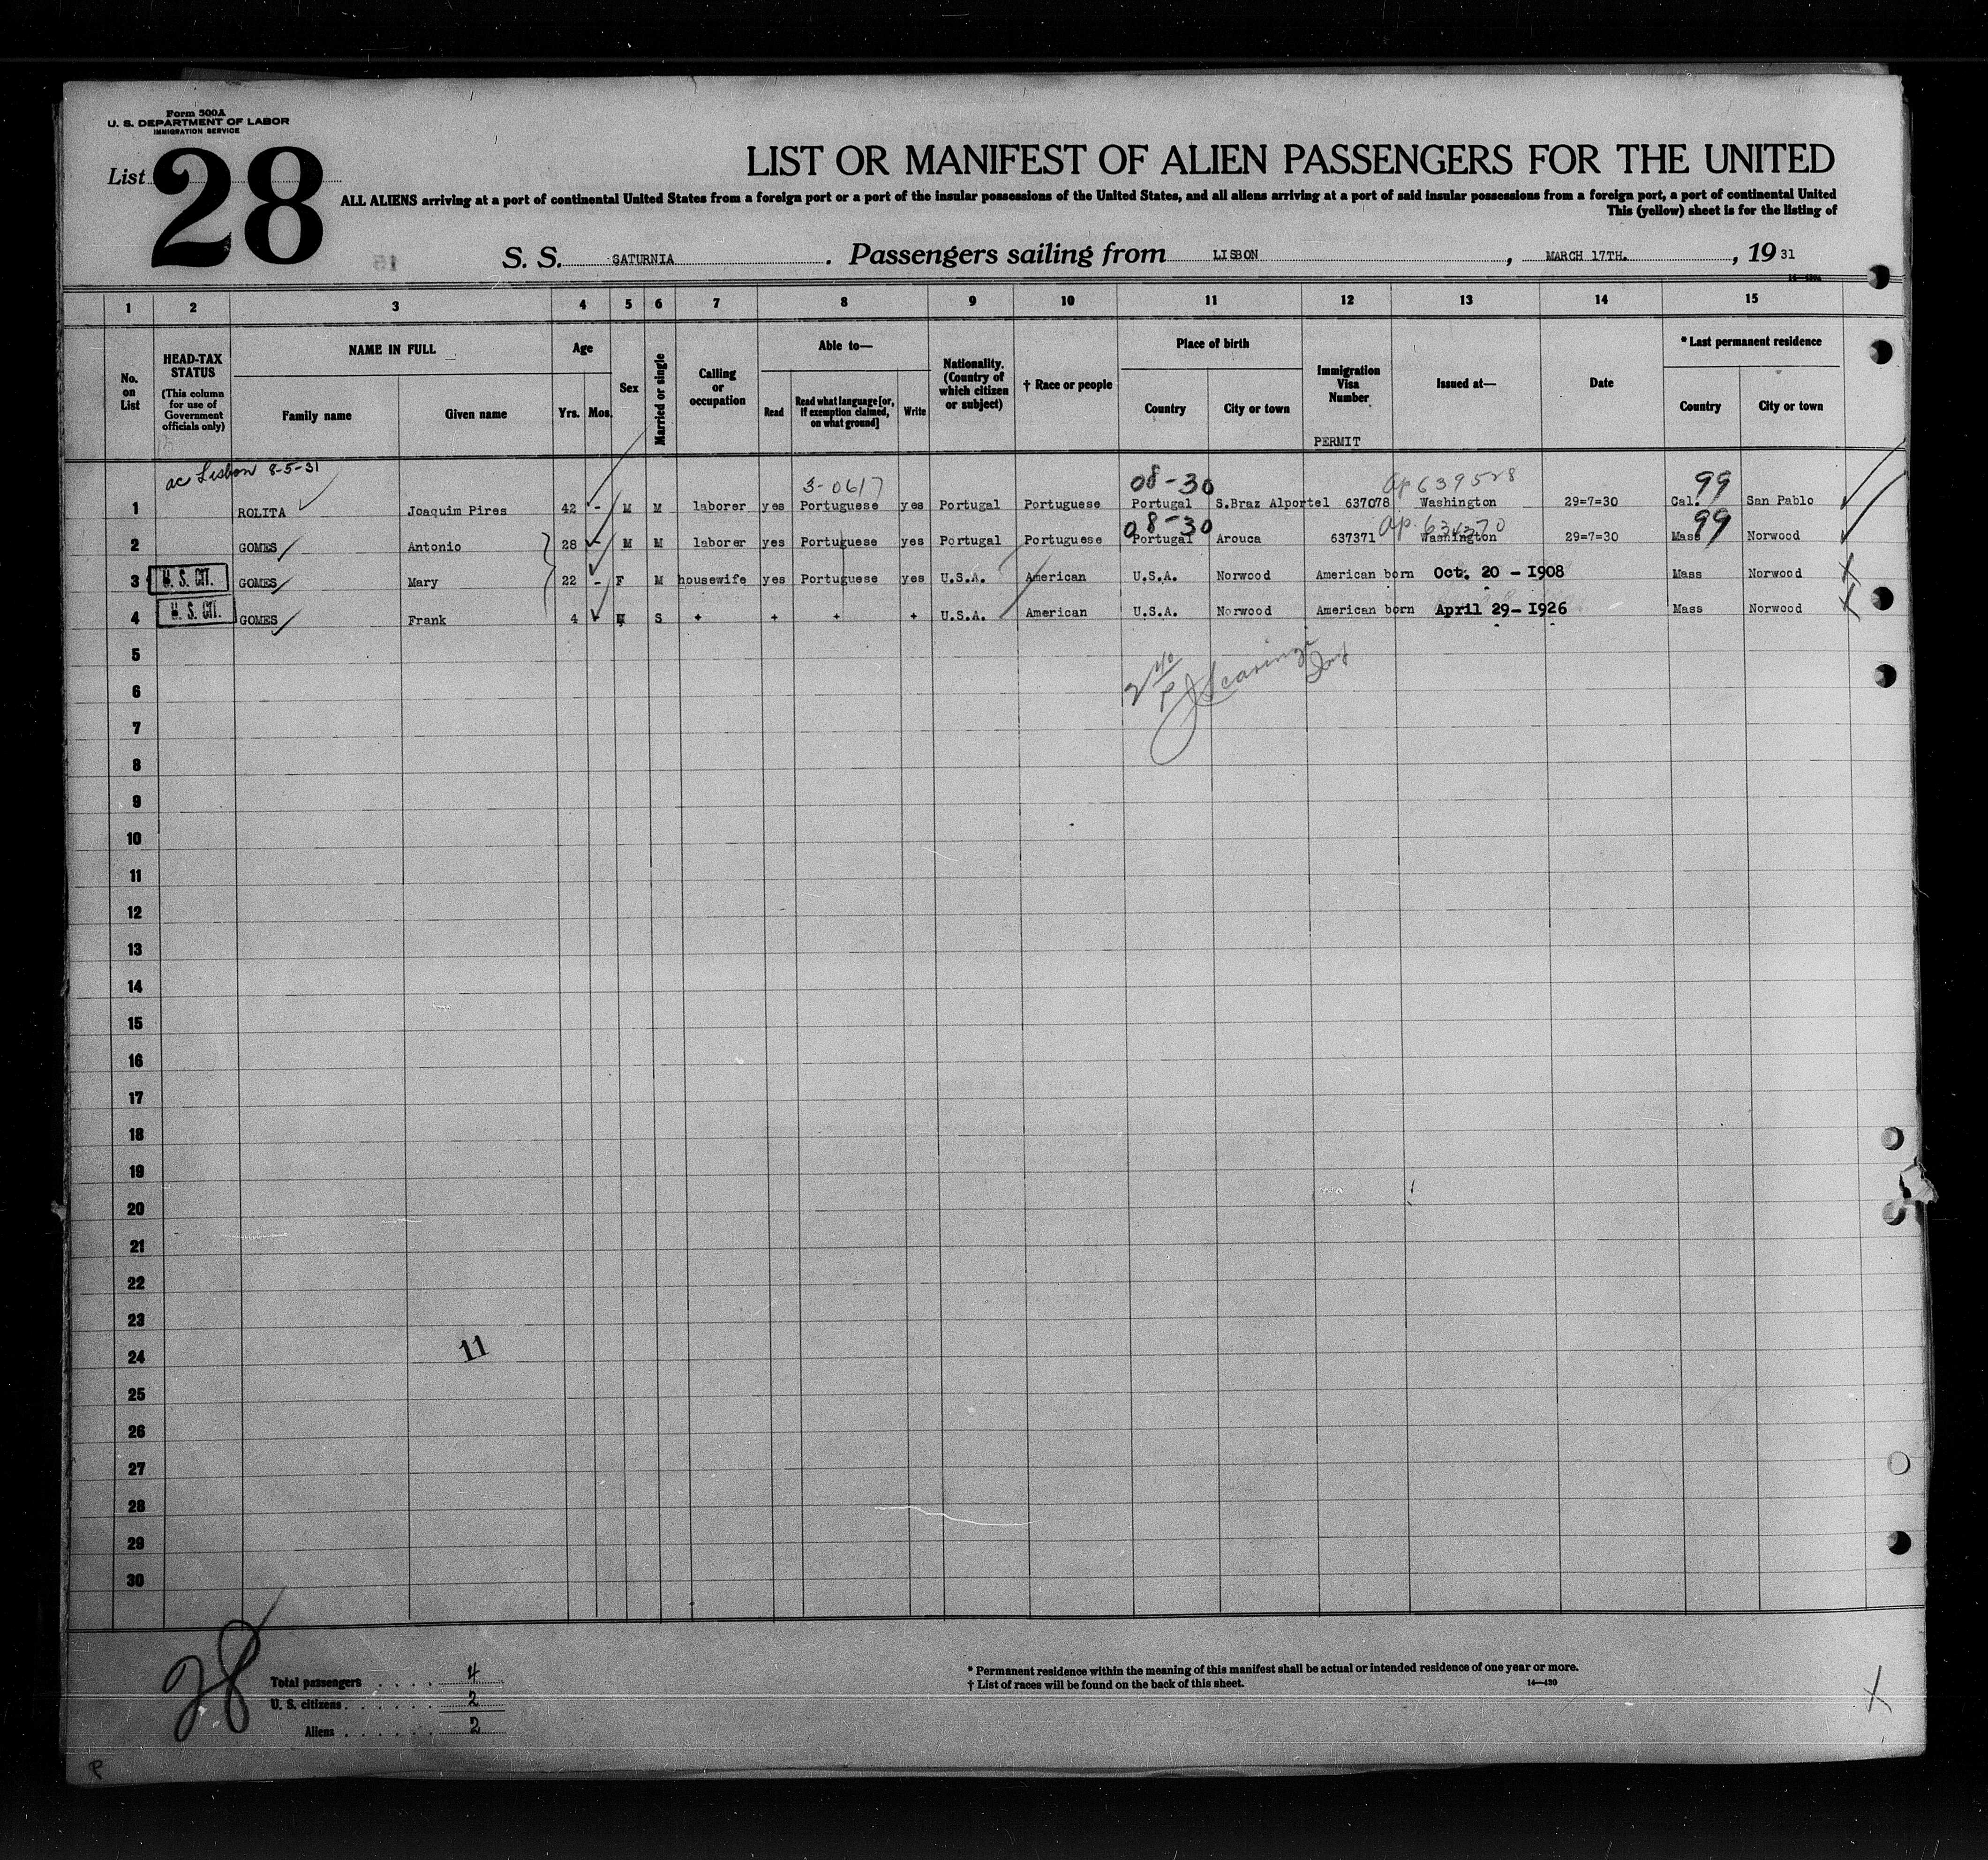 Form 500A
U. S. DEPARTMENT OF LABOR
IMMIGRATION SERVICE
List 28
LIST OR MANIFEST OF ALIEN PASSENGERS FOR THE UNITED
ALL ALIENS arriving at a port of continental United States from a foreign port or a port of the insular possessions of the United States, and all aliens arriving at a port of said insular possessions from a foreign port, a port of continental United
This (yellow) sheet is for the listing of
S. S. SATURNIA . Passengers sailing from LISBON , MARCH 17TH. , 1931
1 2 3 4 5 6 7 8 9 10 11 12 13 14 15
No. on List
HEAD-TAX STATUS (This column for use of Government officials only)
NAME IN FULL
Family name Given name
Age
Yrs. Mos.
Sex
Married or single
Calling or occupation
Able to—
Read Read what language [or, if exemption claimed, on what ground] Write
Nationality. (Country of which citizen or subject)
† Race or people
Place of birth
Country City or town
Immigration Visa Number
PERMIT
Issued at—
Date
* Last permanent residence
Country City or town
ac Lisbon 8-5-31 3-0617 08-30 ap 639528 99
1 ROLITA Joaquim Pires 42 - M M laborer yes Portuguese yes Portugal Portuguese Portugal S.Braz Alportel 637078 Washington 29=7=30 Cal. San Pablo
08-30 ap. 99
2 GOMES Antonio 28 - M M laborer yes Portuguese yes Portugal Portuguese Portugal Arouca 637371 Washington 29=7=30 Mass Norwood
3 U. S. CIT. GOMES Mary 22 - F M housewife yes Portuguese yes U.S.A. American U.S.A. Norwood American born Oct. 20 - 1908 Mass Norwood
4 U. S. CIT. GOMES Frank 4 - M S + + + + U.S.A. American U.S.A. Norwood American born April 29- 1926 Mass Norwood
5
6
7
8
9
10
11
12
13
14
15
16
17
18
19
20
21
22
23
24 11
25
26
27
28
29
30
28
Total passengers . . . . 4
U. S. citizens . . . . . . 2
Aliens . . . . . . 2
* Permanent residence within the meaning of this manifest shall be actual or intended residence of one year or more.
† List of races will be found on the back of this sheet.
14—430
P